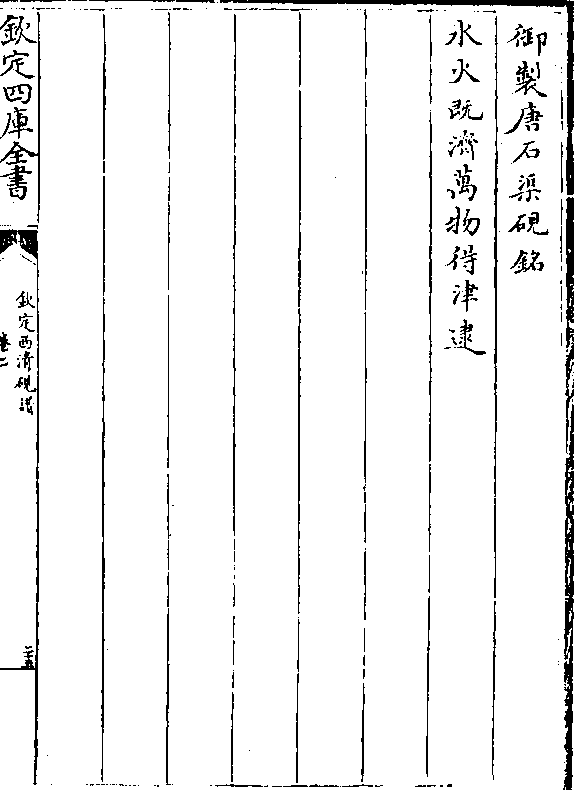 御製唐石渠硯銘
水火既濟萬物得津逮
欽定四庫全書
欽定西清硯譜
卷二
二十五